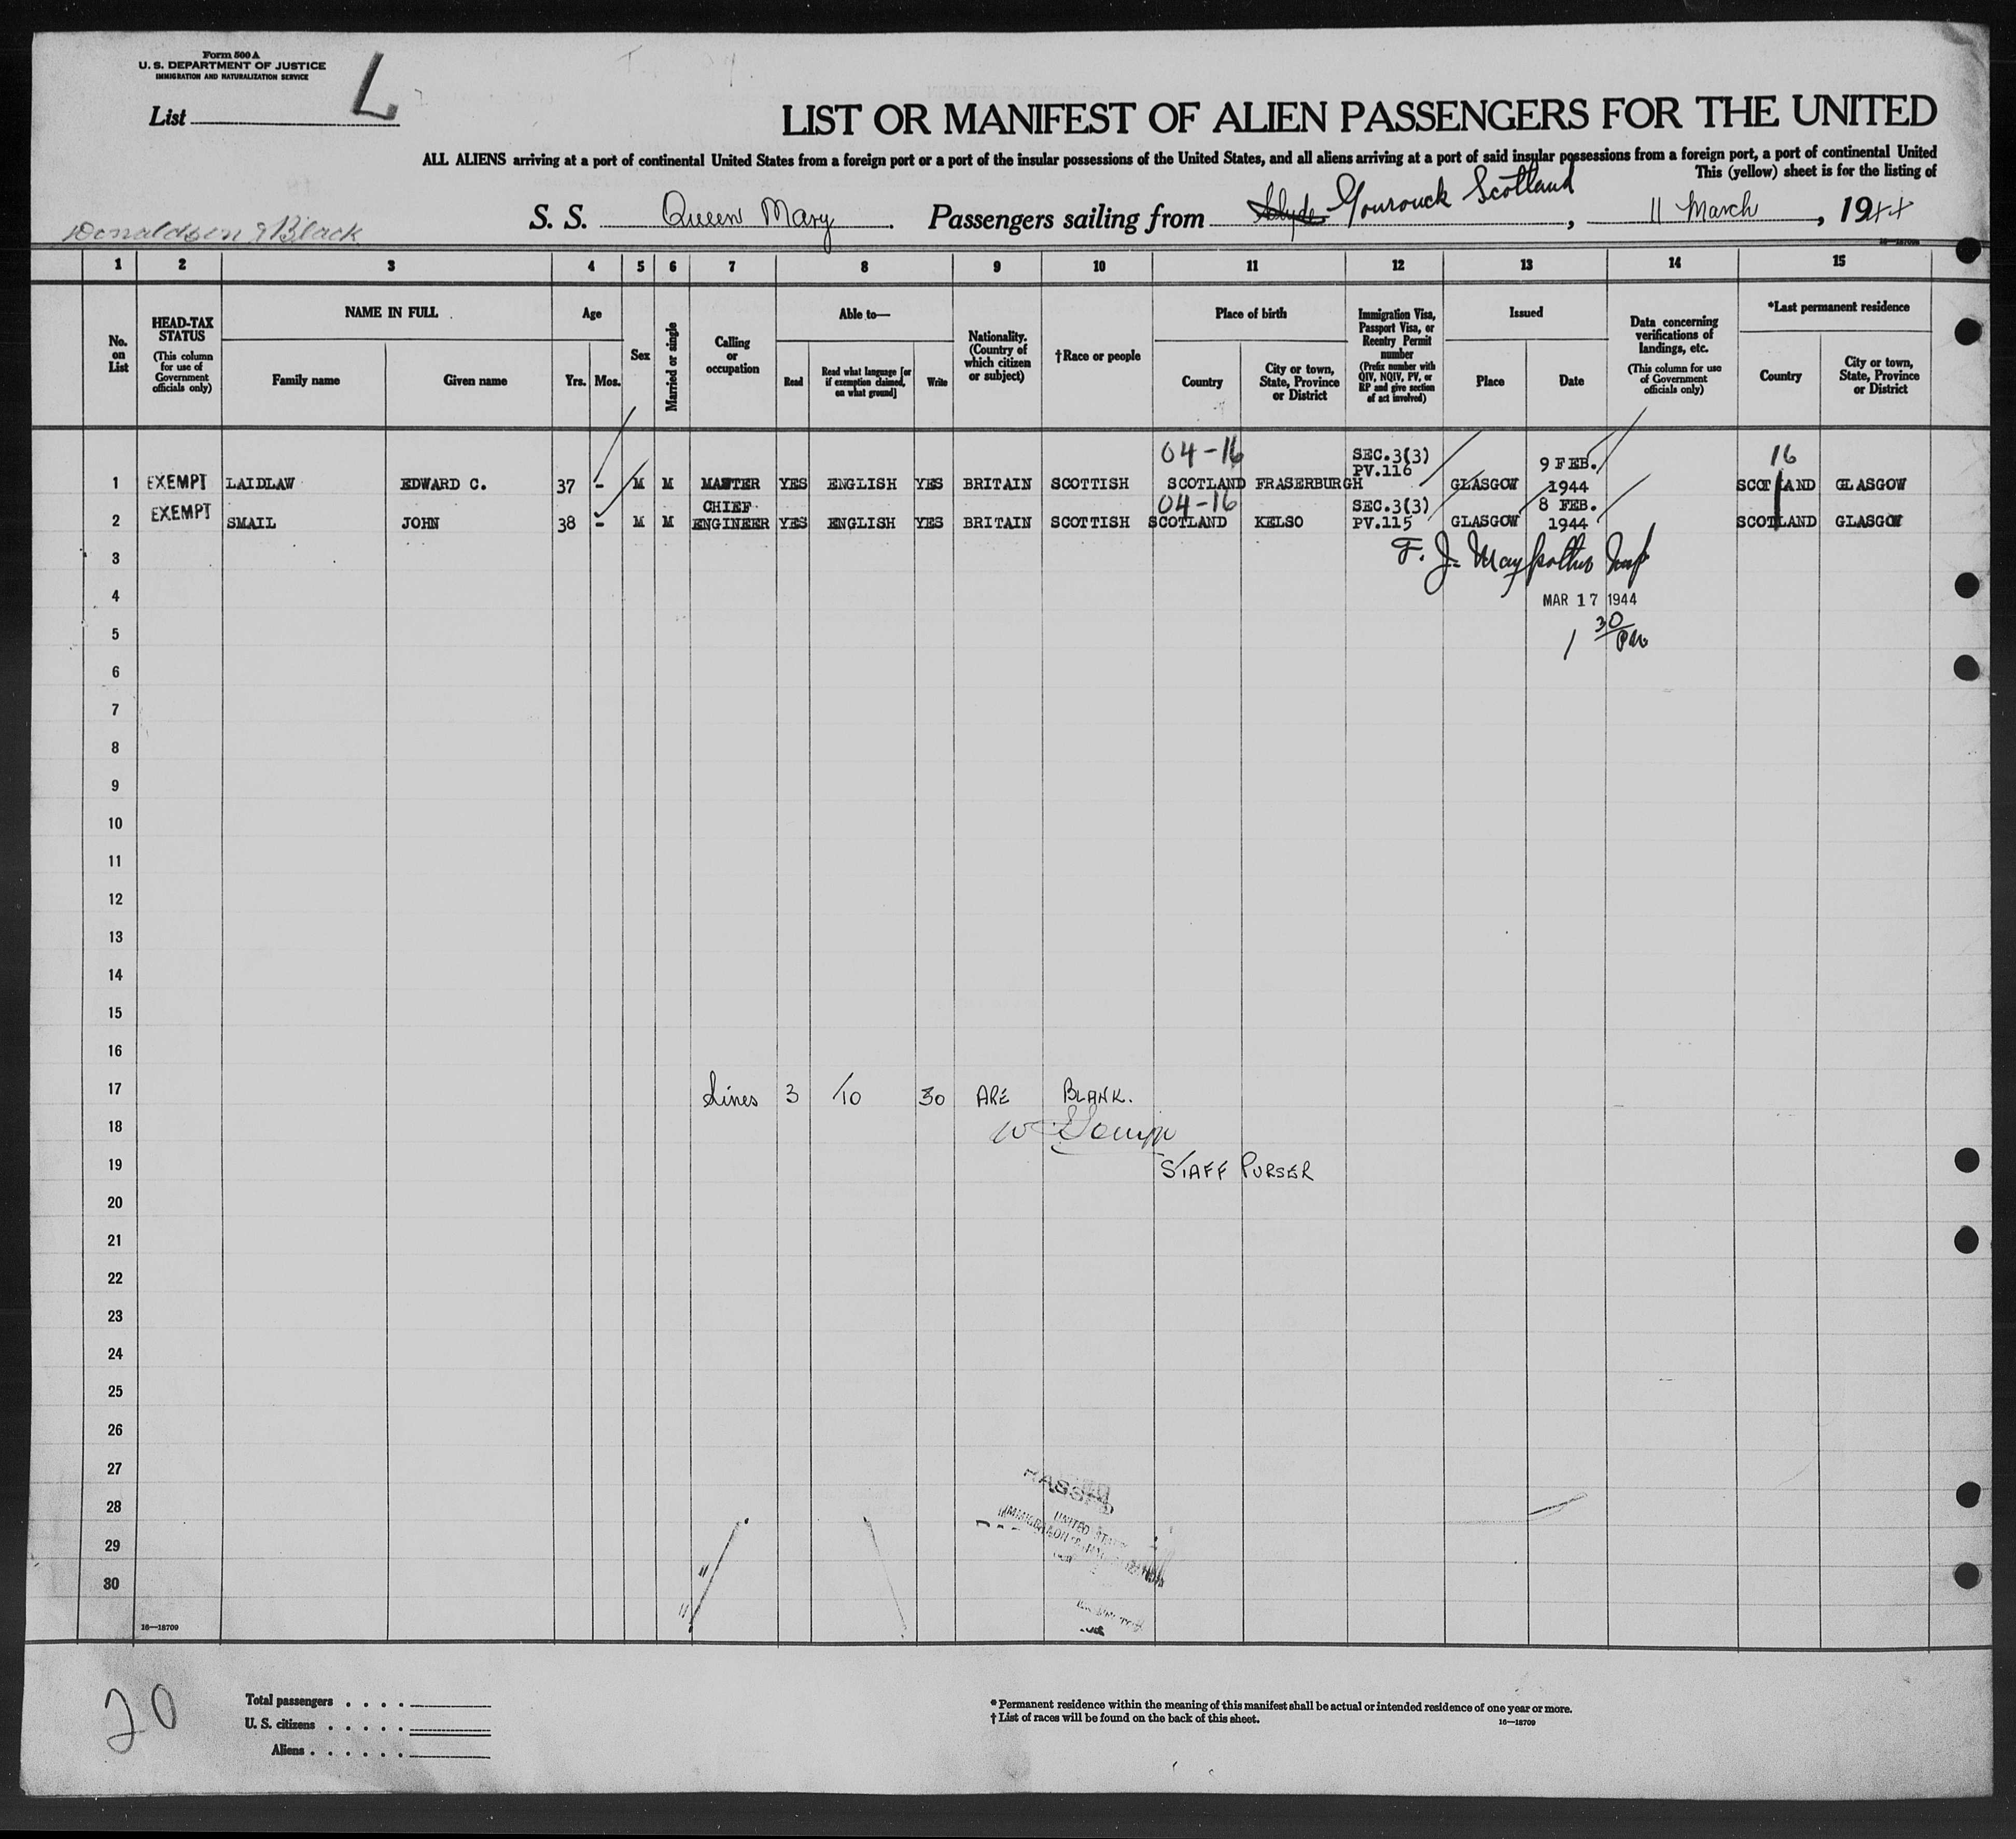 Form 500 A
U. S. DEPARTMENT OF JUSTICE
IMMIGRATION AND NATURALIZATION SERVICE
List L
LIST OR MANIFEST OF ALIEN PASSENGERS FOR THE UNITED
ALL ALIENS arriving at a port of continental United States from a foreign port or a port of the insular possessions of the United States, and all aliens arriving at a port of said insular possessions from a foreign port, a port of continental United
This (yellow) sheet is for the listing of
Donaldson & Black
S. S. Queen Mary. Passengers sailing from Clyde Gourouck Scotland, 11 March, 1944
16—18709
1 2 3 4 5 6 7 8 9 10 11 12 13 14 15
No. on List
HEAD-TAX STATUS (This column for use of Government officials only)
NAME IN FULL
Family name Given name
Age
Yrs. Mos.
Sex
Married or single
Calling or occupation
Able to—
Read Read what language [or if exemption claimed, on what ground] Write
Nationality. (Country of which citizen or subject)
†Race or people
Place of birth
Country City or town, State, Province or District
Immigration Visa, Passport Visa, or Reentry Permit number (Prefix number with QIV, NQIV, PV, or RP and give section of act involved)
Issued
Place Date
Data concerning verifications of landings, etc. (This column for use of Government officials only)
*Last permanent residence
Country City or town, State, Province or District
04-16 SEC.3(3) 9 FEB. 16
1 EXEMPT LAIDLAW EDWARD C. 37 - M M MASTER YES ENGLISH YES BRITAIN SCOTTISH SCOTLAND FRASERBURGH PV.116 GLASGOW 1944 SCOTLAND GLASGOW
CHIEF 04-16 SEC.3(3) 8 FEB.
2 EXEMPT SMAIL JOHN 38 - M M ENGINEER YES ENGLISH YES BRITAIN SCOTTISH SCOTLAND KELSO PV.115 GLASGOW 1944 SCOTLAND GLASGOW
3 F. J.
4 MAR 17 1944
5 1 30 PM
6
7
8
9
10
11
12
13
14
15
16
17 Lines 3 to 30 ARE BLANK.
18
19 STAFF PURSER
20
21
22
23
24
25
26
27 PASSED
28 UNITED
29 IMMIGRATION
30
16—18709
20
Total passengers . . . .
U. S. citizens . . . . .
Aliens . . . . . .
* Permanent residence within the meaning of this manifest shall be actual or intended residence of one year or more.
† List of races will be found on the back of this sheet.
16—18709